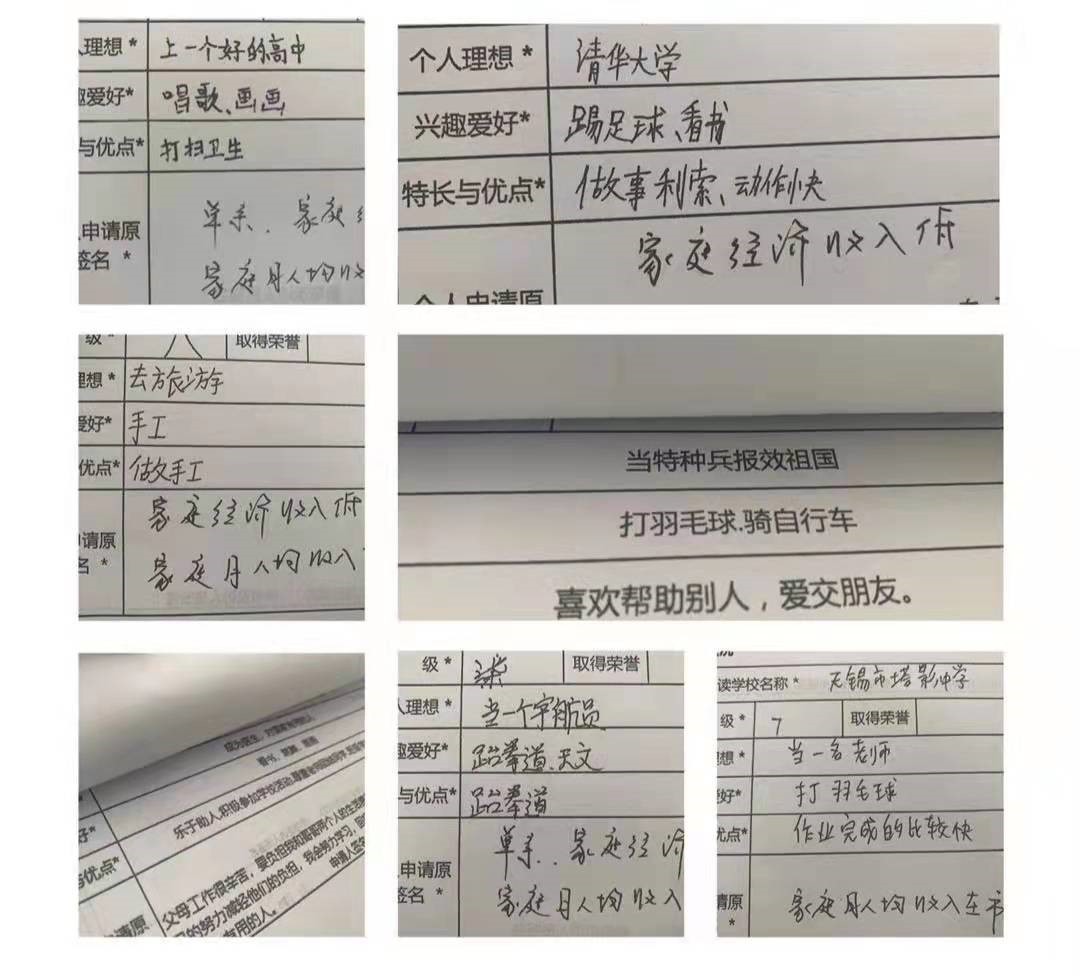 人理想* 上一个好的高中
趣爱好* 唱歌、画画
与优点* 打扫卫生
单亲、家庭经
申请原
签名 *
家庭月人均收
个人理想* 清华大学
兴趣爱好* 踢足球、看书
特长与优点* 做事利索、动作快
家庭经济收入低
个人申请原
级* 八 取得荣誉
理想* 去旅游
爱好* 手工
优点* 做手工
家庭经济收入低
请原
名 *
家庭月人均收入
当特种兵报效祖国
打羽毛球.骑自行车
喜欢帮助别人，爱交朋友。
成为医生，
看书、
乐于助人,积极参加学校活动,尊重老师团结同学
好*
与优点*
父母工作很辛苦，要负担我和哥哥两个人的生活
努力减轻他们的负担，我会努力学习，
有用的人。
申请人签名
请原
级* 柒 取得荣誉
人理想* 当一个宇航员
趣爱好* 跆拳道、天文
与优点* 跆拳道
单亲、家庭经济
人申请原
签名 *
家庭月人均收入
读学校名称* 无锡市塔影中学
级* 7 取得荣誉
理想* 当一名老师
爱好* 打羽毛球
优点* 作业完成的比较快
请原
*
家庭月人均收入在市